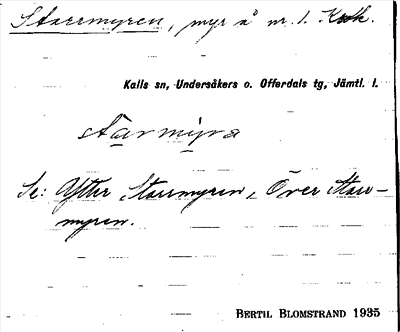 Starrmyren, myr å nr. 1. Krok.
Kalls sn, Undersåkers o. Offerdals tg, Jämtl. l.
starmyra
Se: Ytter Starrmyren, Över Starr-
myren.
BERTIL BLOMSTRAND 1935